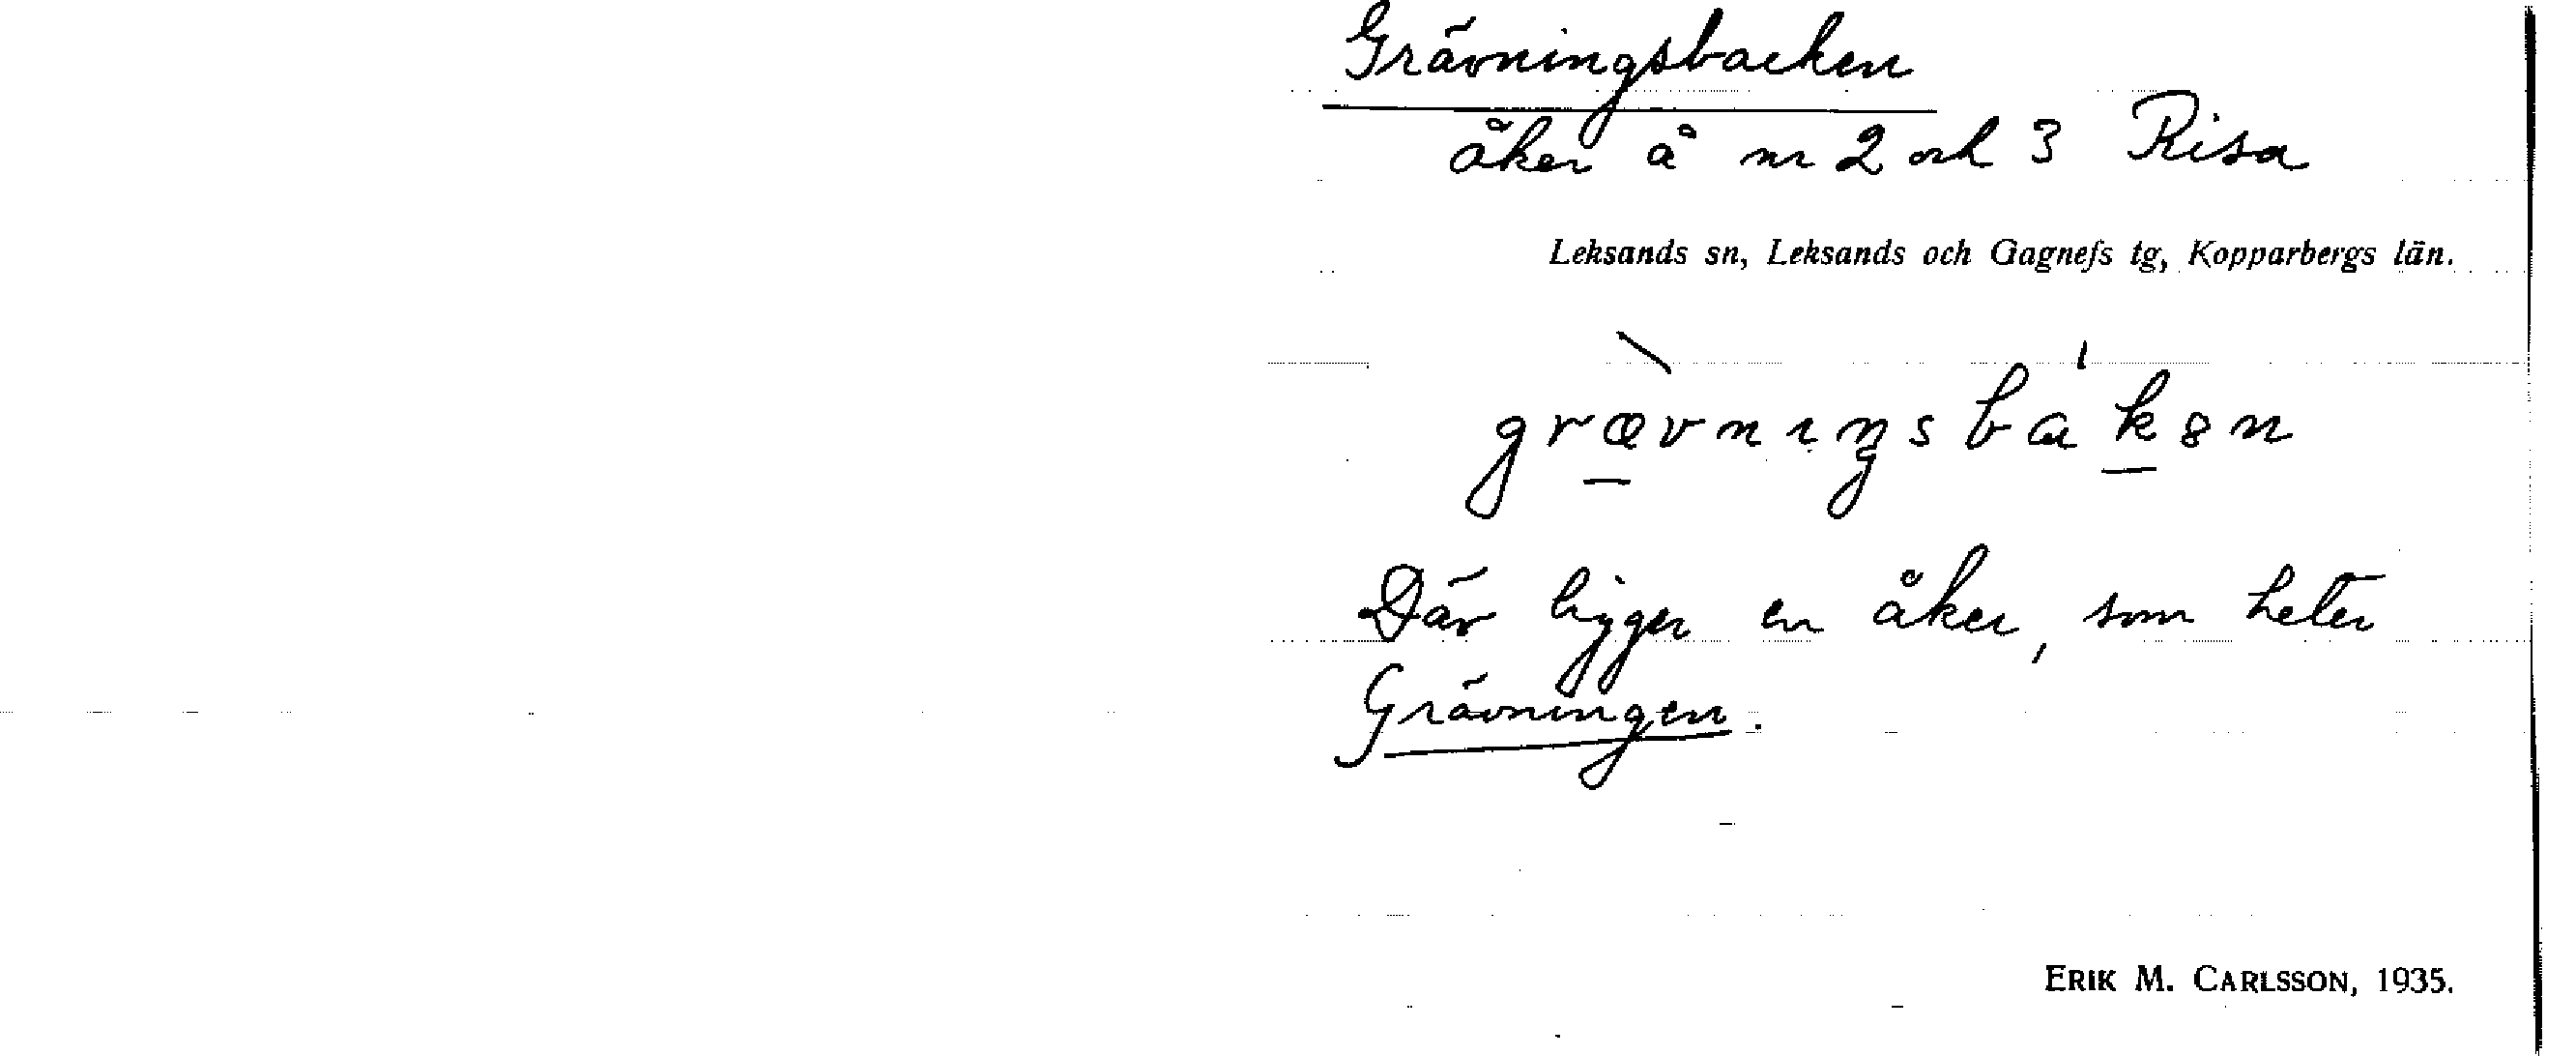 Grävningsbacken
åker å nr 2 och 3 Risa
Leksands sn, Leksands och Gagnefs tg, Kopparbergs län.
grævnıŋsbakən
Där ligger en åker, som heter
Grävningen.
ERIK M. CARLSSON, 1935.